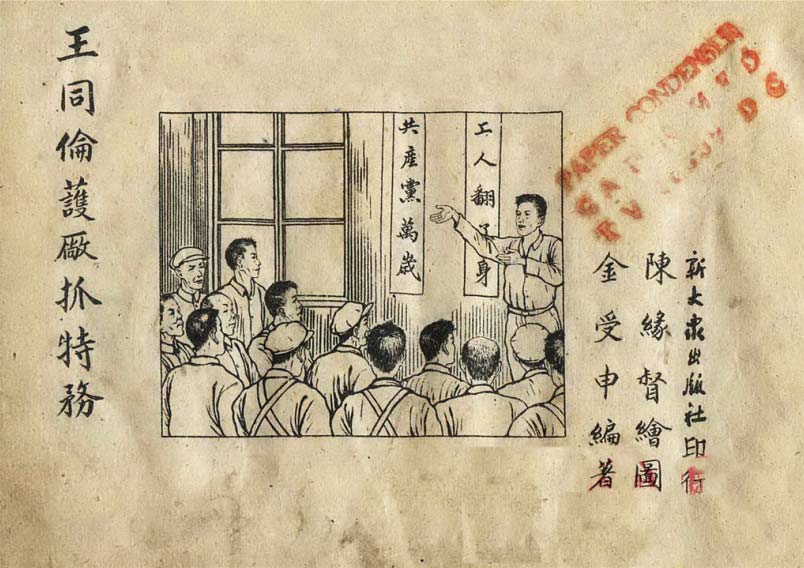 PAPER
新大衆出版社印行
陳緣督繪圖
金受申編著
工人翻了身
共産黨萬歲
王同倫護厰抓特務